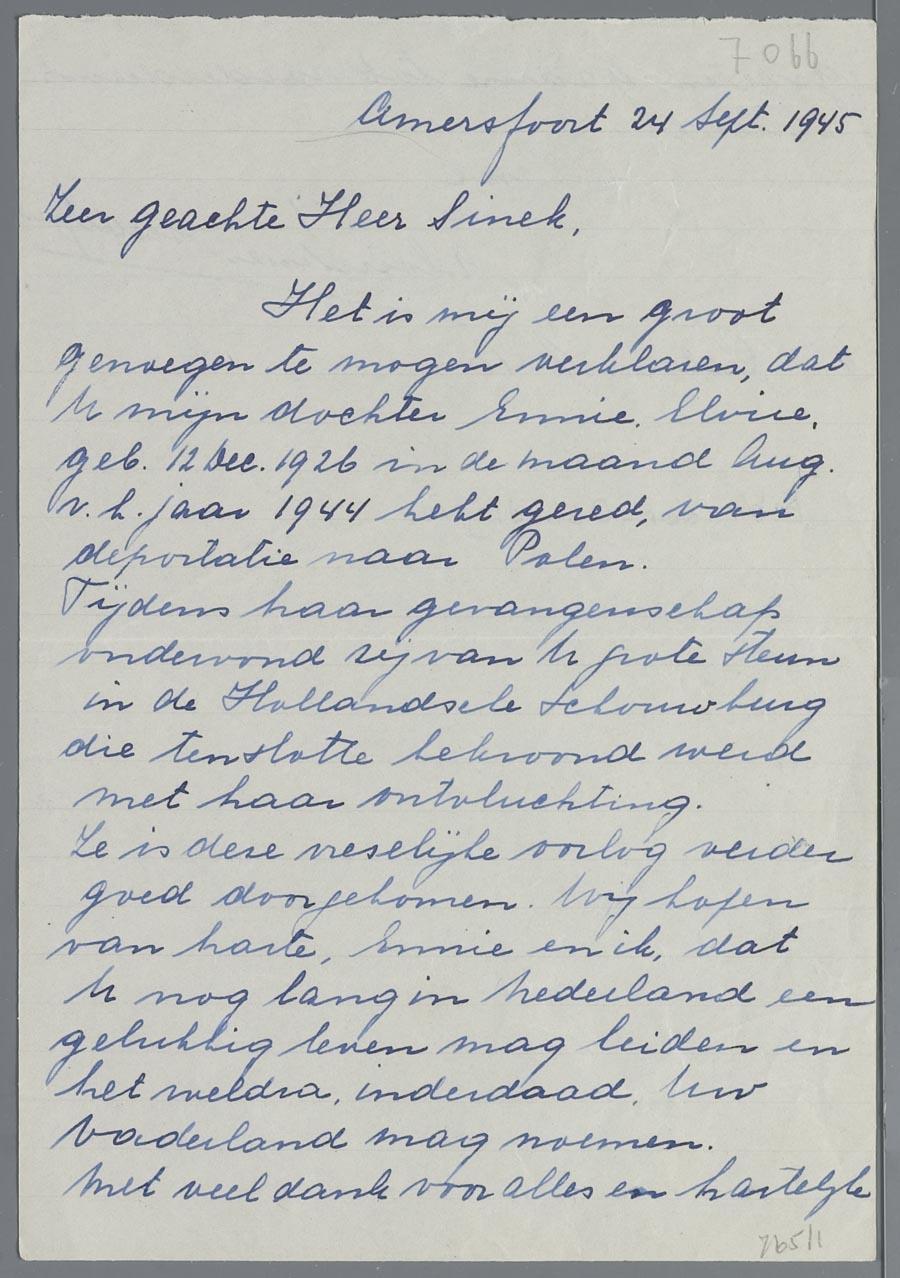 7066
Amersfoort 24 Sept. 1945
Zeer geachte Heer Sinek,
Het is mij een groot
genoegen te mogen verklaren, dat
U mijn dochter Ennie. Elvire,
geb. 12 Dec. 1926 in de maand Aug.
v. h. jaar 1944 hebt gered, van
deportatie naar Polen.
Tijdens haar gevangenschap
ondervond zij van U grote steun
in de Hollandsche Schouwburg
die tenslotte bekroond werd
met haar ontvluchting.
Ze is deze vreselijke oorlog verder
goed doorgekomen. Wij hopen
van harte, Ennie en ik, dat
U nog lang in Nederland een
gelukkig leven mag leiden en
het weldra, inderdaad, Uw
Vaderland mag noemen.
Met veel dank voor alles en hartelijke
765/1